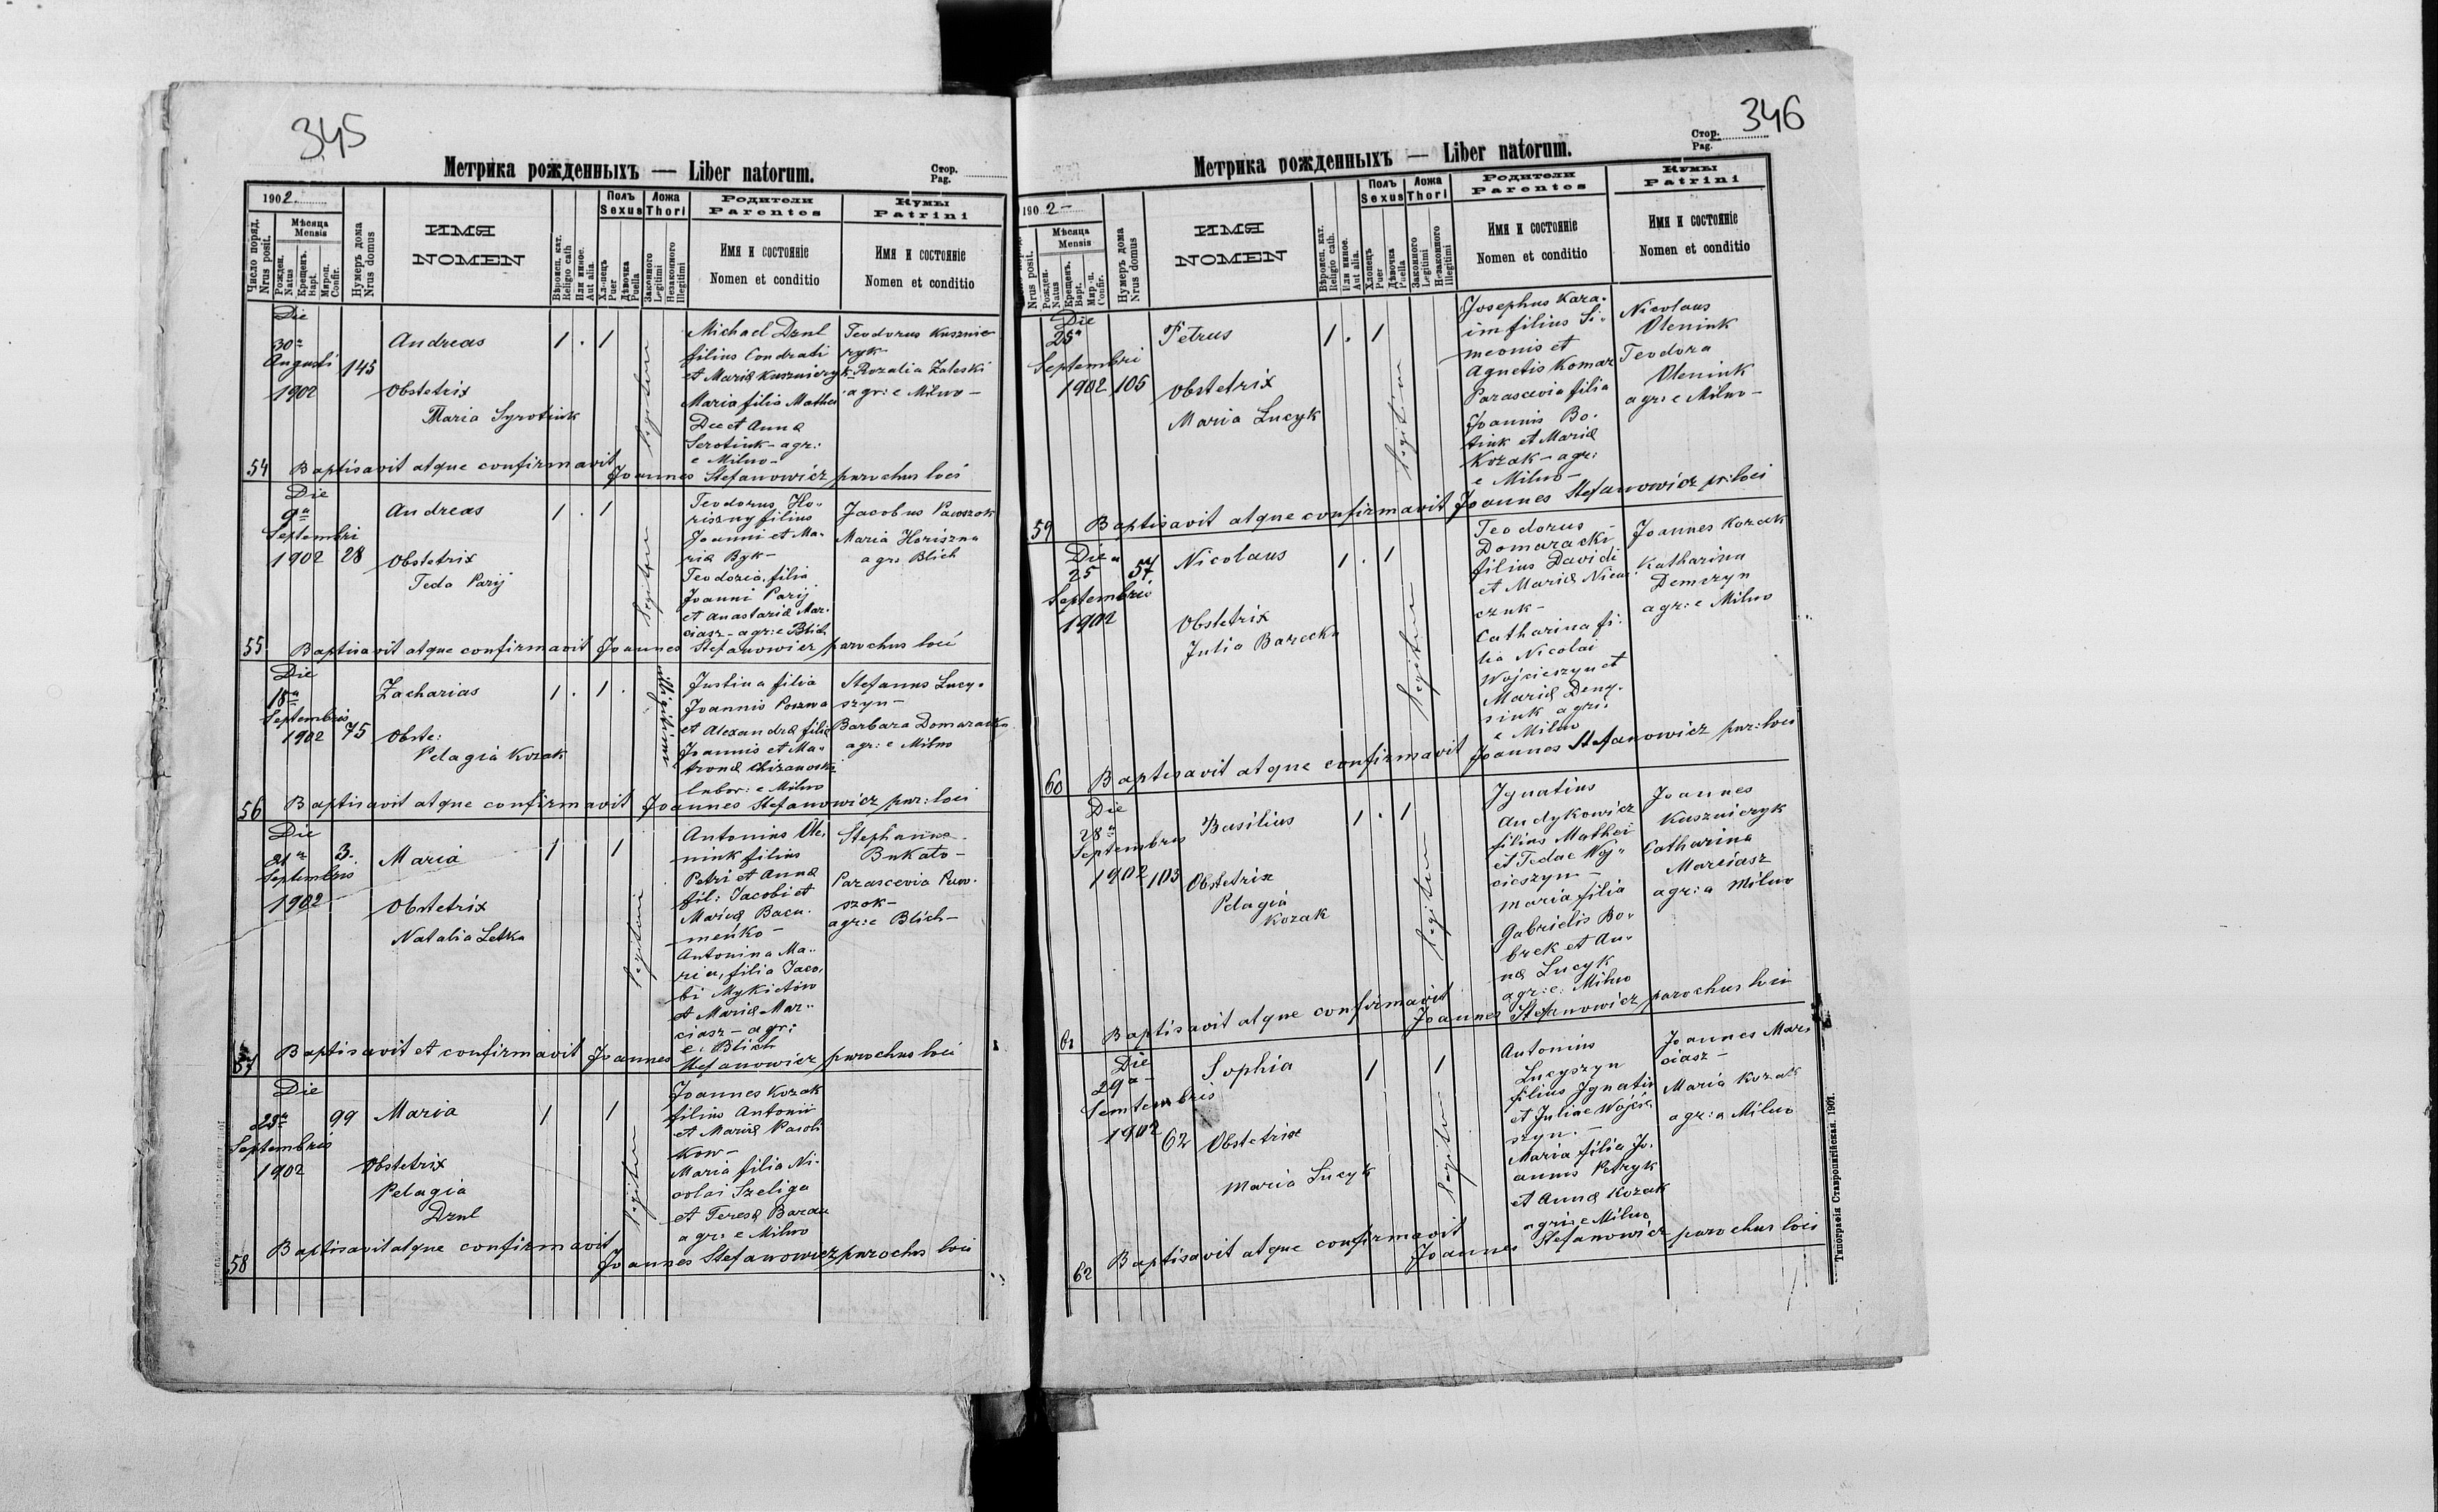 345
Метрика рожденныхъ — Liber natorum.
Стор.
Pag.
1902
Число поряд.
Nrus posit.
Мѣсяца
Mensis
Рожден.
Natus
Крещенъ.
Bapt.
Мѵроп.
Confir.
Нумеръ дома
Nrus domus
ИМЯ
NOMEN
Вѣроисп. кат.
Religio cath
Или иное.
Aut alia.
Полъ
Sexus
Хлопецъ
Puer
Дѣвочка
Puella
Ложа
Thori
Законного
Legitimi
Незаконного
Illegitimi
Родители
Parentes
Имя и состояніе
Nomen et conditio
Кумы
Patrini
Имя и состояніе
Nomen et conditio
Die
30ª
Augusti
1902
145
Andreas
Obstetrix
Maria Syrotiuk
1 . 1
legitimi
Michael Dzul
filius Condrati
et Mariæ Kuszniryk
Maria filia Mathei
Dec et Annæ
Serotiuk - agr:
e Milno -
Teodorus Kusznie
ryk -
Rozalia Zaleski
agr: e Milno -
54 Baptisavit atque confirmavit
Joannes Stefanowicz parochus loci
Die
9ª
Septembri
1902
28
Andreas
Obstetrix
Teda Parij
1 . 1
legitimi
Teodorus Ho-
riszny filius
Joanni et Ma-
riæ Byk -
Teodozia filia
Joanni Parij
et Anastasiæ Mar-
ciasz - agr: e Blich
Jacobus Pawszok
Maria Horiszna
agr: Blich
55 Baptisavit atque confirmavit Joannes Stefanowicz parochus loci
Die
18ª
Septembris
1902
75
Zacharias
Obste:
Pelagia Kozak
1 . 1 .
illegitimi
Justina filia
Joannis Poszwa
et Alexandræ filiæ
Joannis et Ma-
tronæ
labor: e Milno
Stefanus Lucy-
szyn -
Barbara Domaracka
agr: e Milno
56 Baptisavit atque confirmavit Joannes Stefanowicz par: loci
Die
21ª
Septembris
1902
3.
Maria
Obstetrix
Natalia Letka
1 1
legitimi
Antonius Ole-
niuk filius
Petri et Annæ
fil: Jacobi et
Mariæ Bacu-
meńko -
Antonina Ma-
ria, filia Jaco-
bi Mykietów
et Mariæ Mar-
ciasz - agr:
e: Blich
Stephanus
Bukato -
Parascevia Paw-
szok -
agr: e Blich -
57 Baptisavit et confirmavit Joannes Stefanowicz parochus loci
Die
23ª
Septembris
1902
99
Maria
Obstetrix
Pelagia
Dzul
1 1
legitimi
Joannes Kozak
filius Antonii
et Mariæ
kow -
Maria filia Ni-
colai Szeliga
et Teresæ
agr: e Milno
58 Baptisavit atque confirmavit
Joannes Stefanowicz parochus loci
346
Метрика рожденныхъ — Liber natorum.
Стор.
Pag.
1902 -
Nrus posit.
Мѣсяца
Mensis
Рожден.
Natus
Крещенъ.
Bapt.
Мѵроп.
Confir.
Нумеръ дома
Nrus domus
ИМЯ
NOMEN
Вѣроисп. кат.
Religio cath.
Или иное.
Aut alia.
Полъ
Sexus
Хлопецъ
Puer
Дѣвочка
Puella
Ложа
Thori
Законного
Legitimi
Незаконного
Illegitimi
Родители
Parentes
Имя и состояніе
Nomen et conditio
Кумы
Patrini
Имя и состояніе
Nomen et conditio
Die
25ª
Septembri
1902
105
Petrus
Obstetrix
Maria Lucyk
1 . 1
legitimi
Josephus Kara-
im filius Si-
meonis et
Agnetis Komar
Parascevia filia
Joannis Bo-
tiuk et Mariæ
Kozak - agr:
e Milno -
Nicolaus
Oleniuk
Teodora
Oleniuk
agr: e Milno -
59 Baptisavit atque confirmavit Joannes Stefanowicz par: loci
Die
25ª
Septembris
1902
57
Nicolaus
Obstetrix
Julia Barecka
1 . 1
legitimi
Teodorus
Domaracki
filius Davidi
et Mariæ
czuk -
Catharina fi-
lia Nicolai
Wojciszyn et
Mariæ Deny-
siuk agri:
e Milno
Joannes Kozak
Katharina
Demczyn
agr: e Milno
60 Baptisavit atque confirmavit Joannes Stefanowicz par: loci
Die
28ª
Septembris
1902
103
Basilius
Obstetrix
Pelagia
Kozak
1 . 1
legitimi
Ignatius
Andykowicz
filius Mathei
et Tedae Woj-
ciszyn -
Maria filia
Gabrielis Bo-
brek et An-
næ Lucyk
agr: e: Milno
Joannes
Kuszniryk
Catharina
Marciasz
agr: a Milno
61 Baptisavit atque confirmavit
Joannes Stefanowicz parochus loci
Die
29ª -
Semtembris
1902
62
Sophia
Obstetrix
Maria Lucyk
1 1
legitimi
Antonius
Lucyszyn
filius Ignatii
et Juliae Wójci-
szyn. -
Maria filia Jo-
annis Petryk
et Annæ Kozak
agri: e Milno
Joannes Mar-
ciasz -
Maria Kozak
agr: a Milno
62 Baptisavit atque confirmavit
Joannes Stefanowicz parochus loci
Типографія Ставропигійская. 1901.